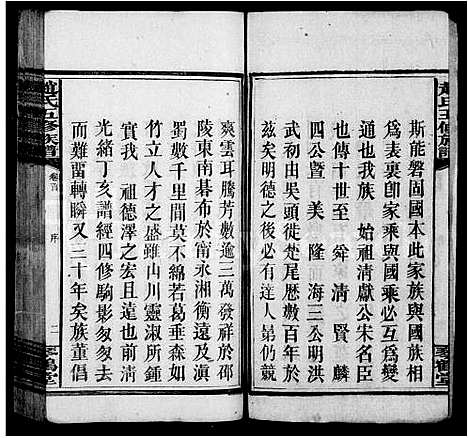 趙氏五修族譜
斯能磐固國本此家族與國族相
為表裏卽家乘與國乘必互為變
通也我族 始祖清獻公宋名臣
也傳十世至 舜 清 賢 麟
四公暨 美 隆 海三公明洪
武初由吳頭徙楚尾歷數百餘年
茲矣明德之後必有達人苐仍競
琴鶴堂
爽雲耳騰芳數逾三萬發祥於邵
陵東南碁布於甯永湘衡遠及滇
蜀數千里間莫不綿若葛垂森如
竹立人才之盛雖山川靈淑所鍾
我 祖德澤之宏且遠也何多讓焉
光緒丁亥譜經四修駒影匆匆去
而難留轉瞬又三十年矣族董倡
趙氏五修族譜
卷首
序
二
琴鶴堂